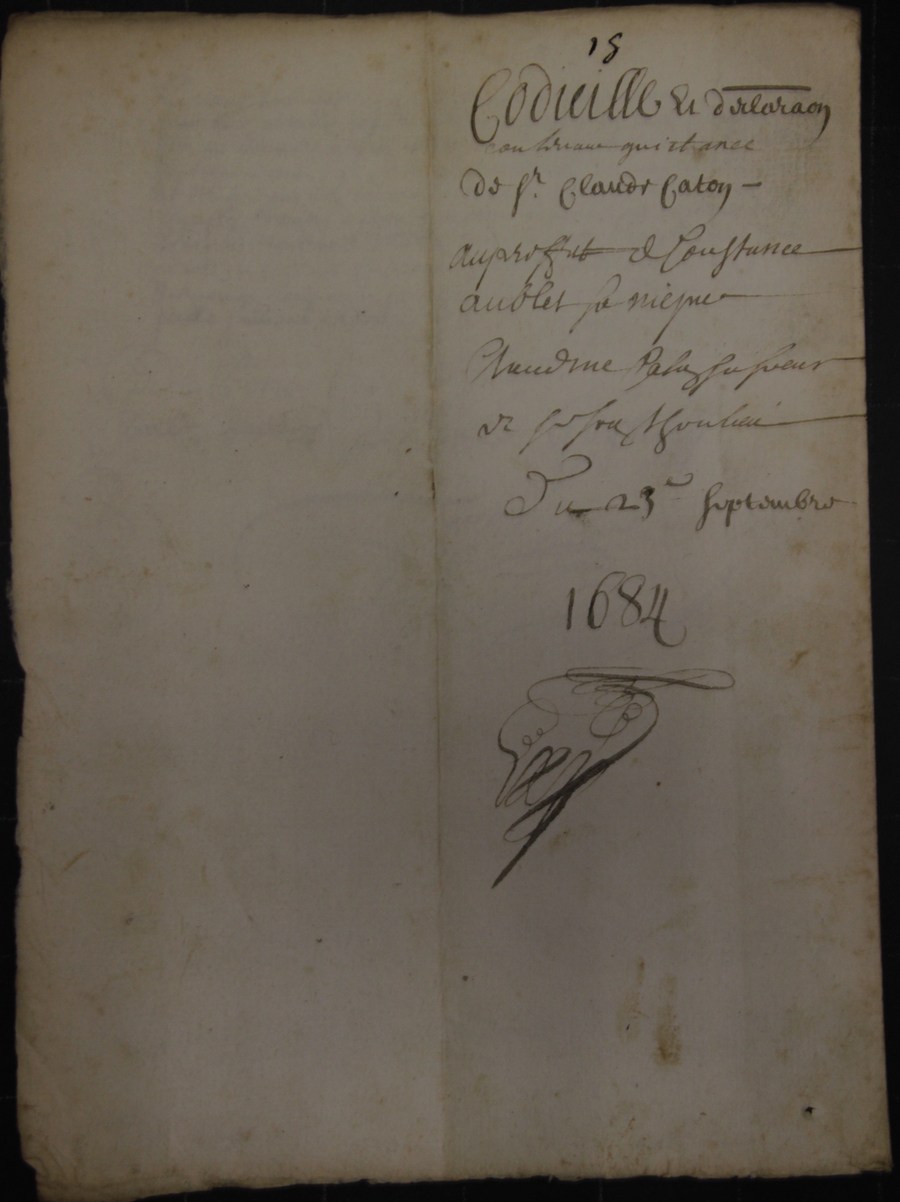 18
Codicille et declaraon
contenant quittance
de Sr. Claude Caton –
au proffit de Constance
aublet sa niepce
Claudine sa soeur
et
Du 23e septembre
1684